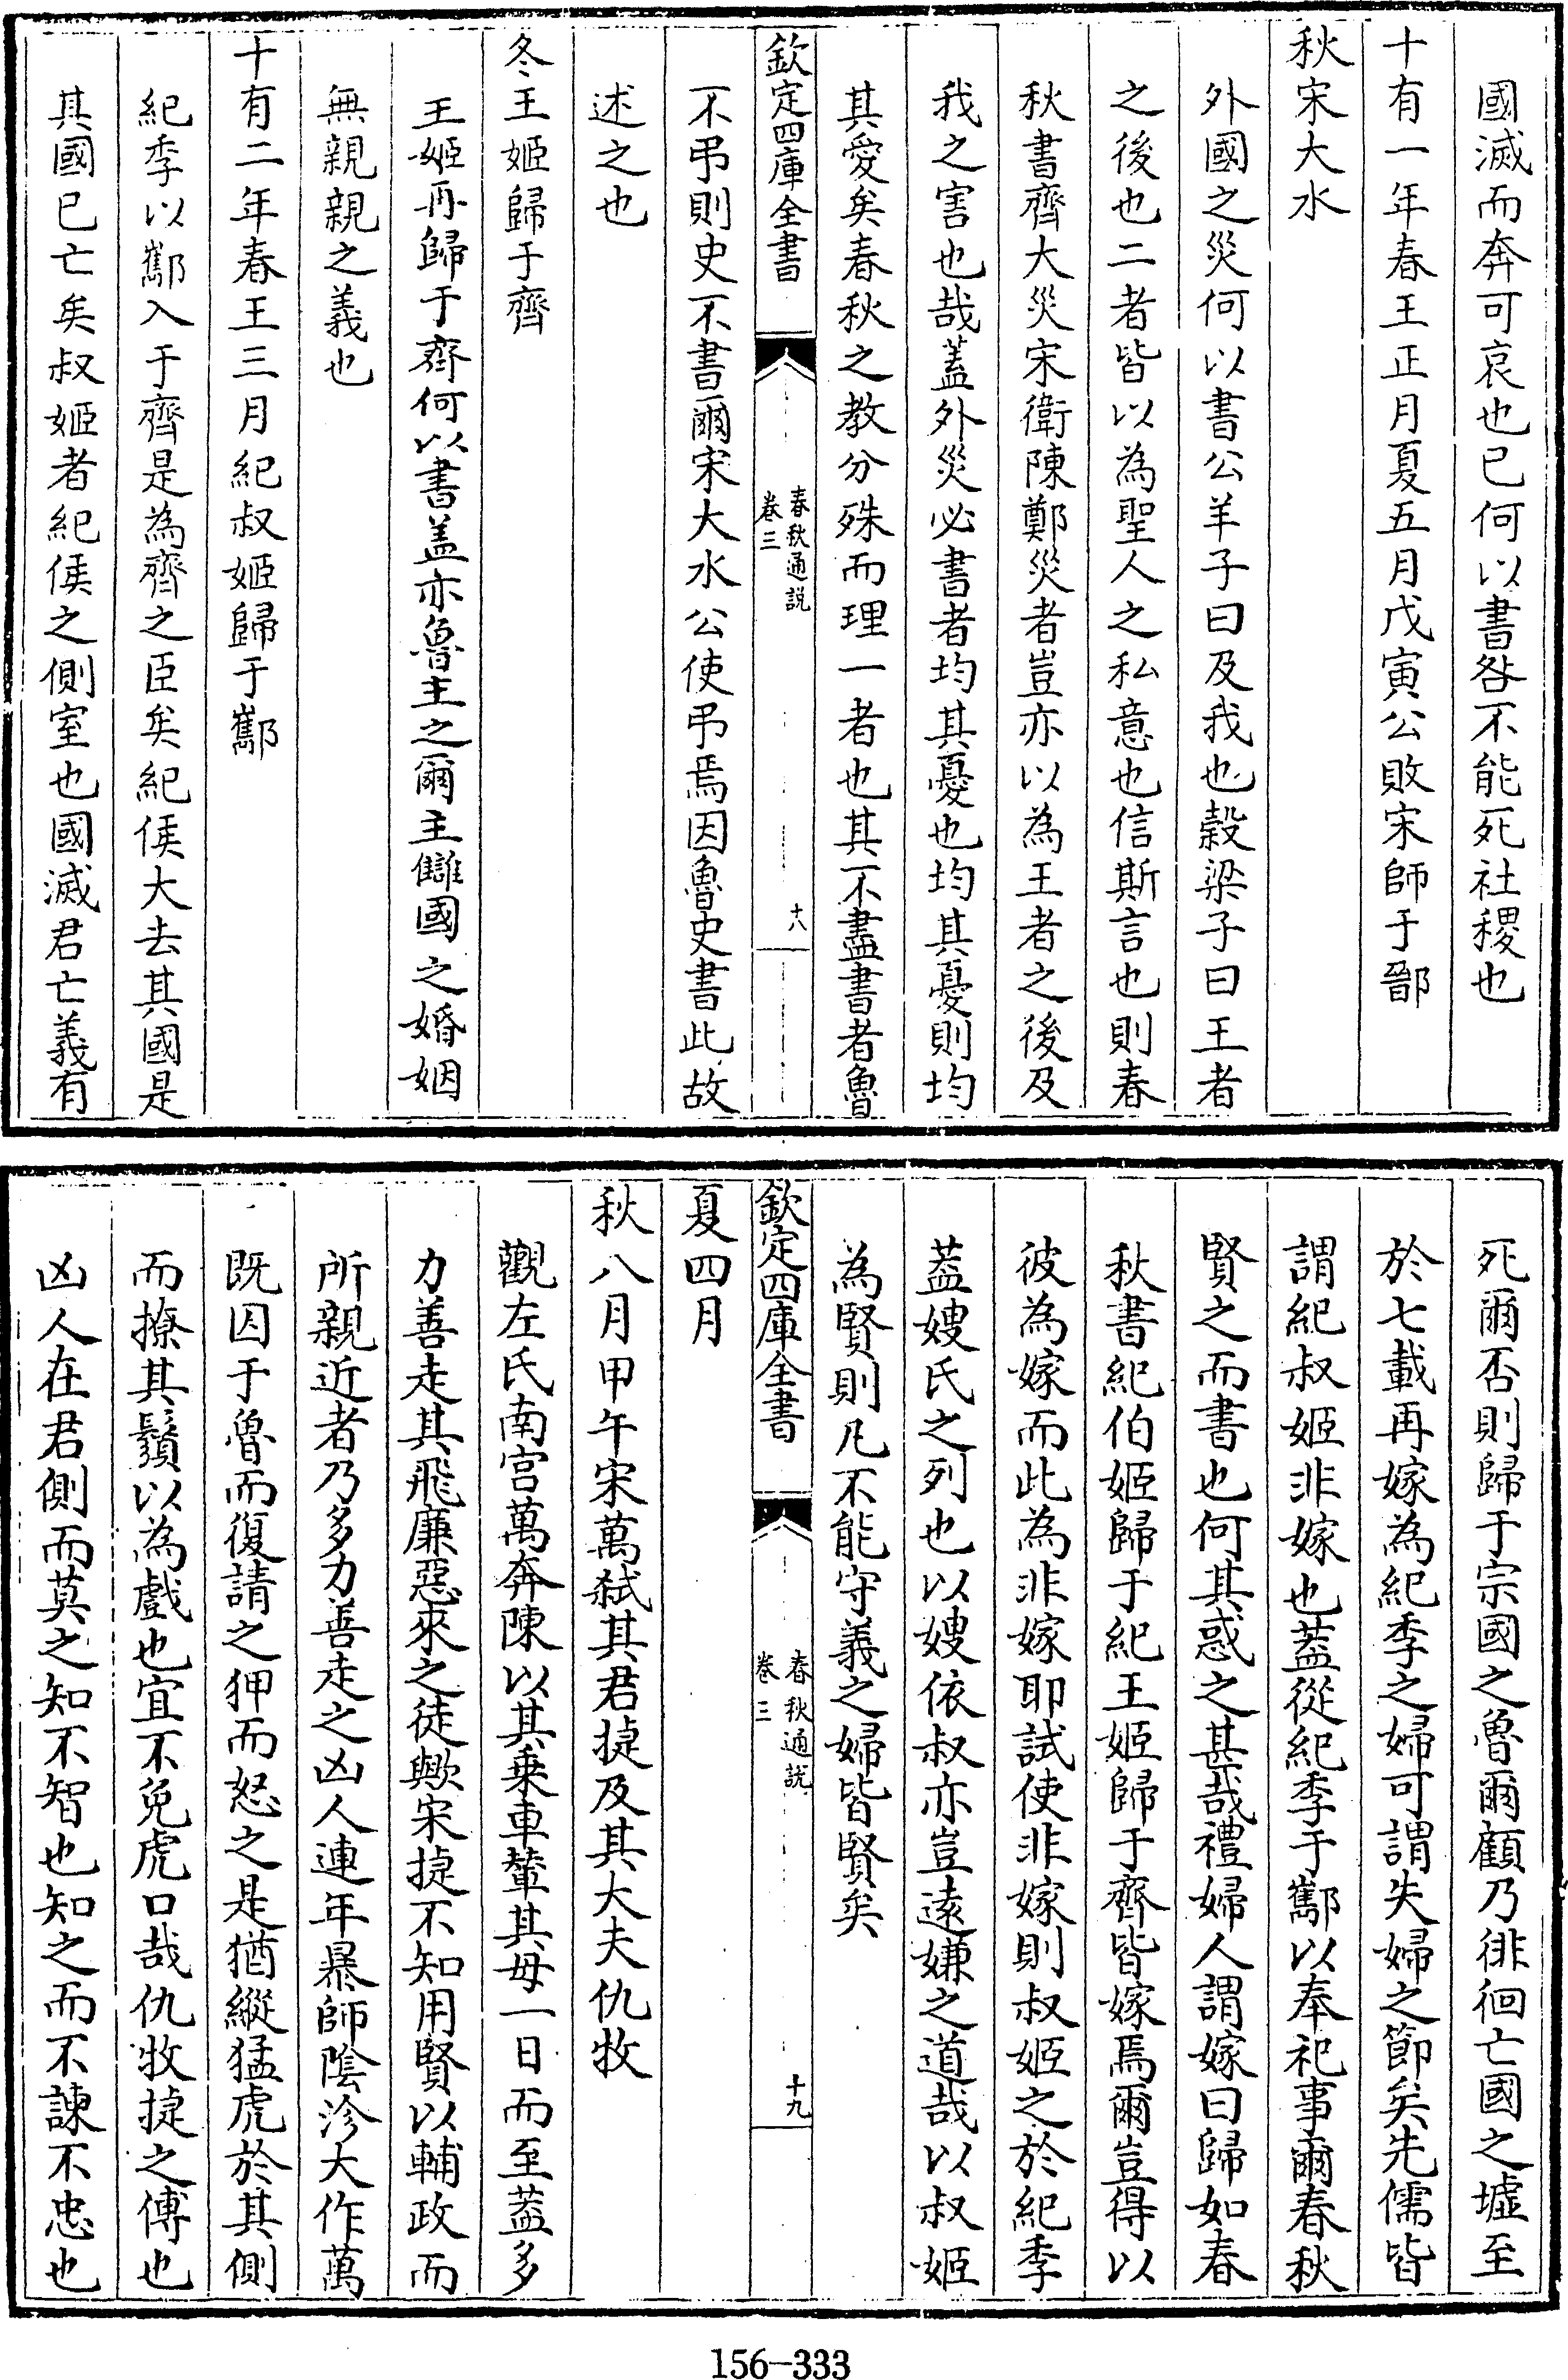 國滅而奔可哀也已何以書咎不能死社稷也
十有一年春王正月夏五月戊寅公敗宋師于鄑
秋宋大水
外國之災何以書公羊子曰及我也榖梁子曰王者
之後也二者皆以為聖人之私意也信斯言也則春
秋書齊大災宋衛陳鄭災者豈亦以為王者之後及
我之害也哉蓋外災必書者均其憂也均其憂則均
其愛矣春秋之教分殊而理一者也其不盡書者魯
欽定四庫全書
春秋通説
卷三
十八
不弔則史不書爾宋大水公使弔焉因魯史書此故
述之也
冬王姬歸于齊
王姬再歸于齊何以書盖亦魯主之爾主讎國之婚姻
無親親之義也
十有二年春王三月紀叔姬歸于酅
紀季以酅入于齊是為齊之臣矣紀侯大去其國是
其國已亡矣叔姬者紀侯之側室也國滅君亡義有
死爾否則歸于宗國之魯爾顧乃徘徊亡國之墟至
於七載再嫁為紀季之婦可謂失婦之節矣先儒皆
謂紀叔姬非嫁也蓋從紀季于酅以奉祀事爾春秋
賢之而書也何其惑之甚哉禮婦人謂嫁曰歸如春
秋書紀伯姬歸于紀王姬歸于齊皆嫁焉爾豈得以
彼為嫁而此為非嫁耶試使非嫁則叔姬之於紀季
蓋嫂氏之列也以嫂依叔亦豈遠嫌之道哉以叔姬
為賢則凡不能守義之婦皆賢矣
欽定四庫全書
春秋通説
卷三
十九
夏四月
秋八月甲午宋萬弑其君捷及其大夫仇牧
觀左氏南宫萬奔陳以其乗車輦其母一日而至蓋多
力善走其飛廉惡來之徒歟宋捷不知用賢以輔政而
所親近者乃多力善走之凶人連年暴師隂沴大作萬
既囚于魯而復請之狎而怒之是猶縱猛虎於其側
而撩其鬚以為戲也宜不免虎口哉仇牧捷之傅也
凶人在君側而莫之知不智也知之而不諫不忠也
156-333